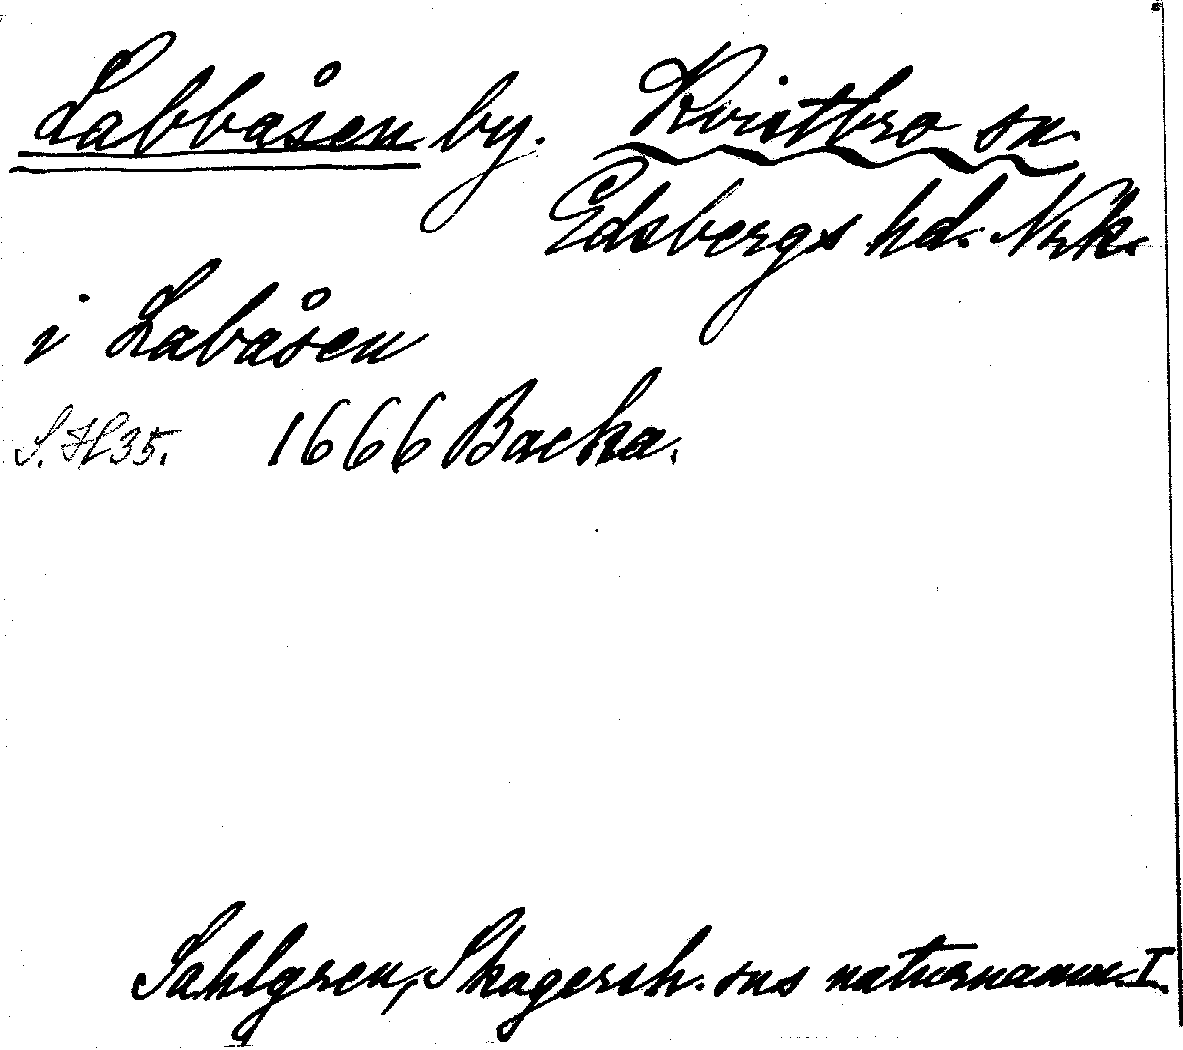 Labbåsen by. Kvistbro sn.
Edsbergs hd. Nrk.
i Labåsen
S. H 35. 1666 Backa.
Sahlgren, Skagersh. sns naturnamn I.